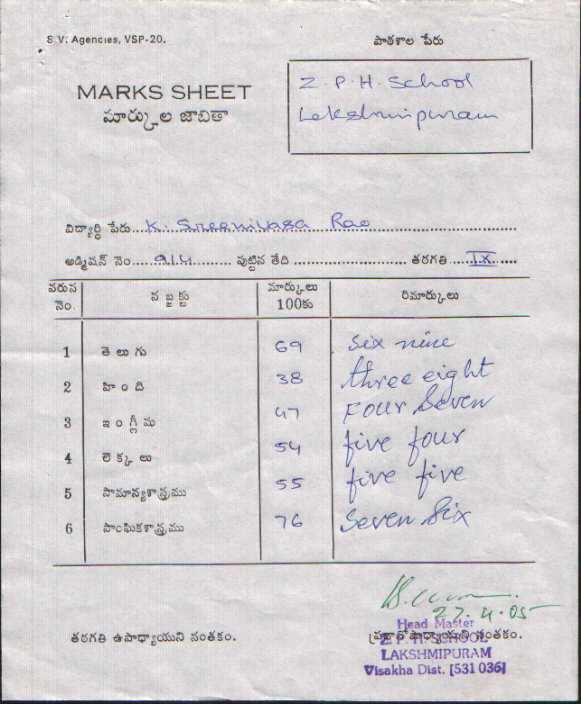 S.V. Agencies, VSP-20.
పాఠశాల పేరు
MARKS SHEET
మార్కుల జాబితా
Z.P.H. School
Lakshmipuram
విద్యార్థి పేరు....K. Sreenivasa Rao
అడ్మిషన్ నెం....914........ పుట్టిన తేది ........................ తరగతి ....IX......
వరుస నెం.
సబ్జక్టు
మార్కులు 100కు
రిమార్కులు
1 తెలుగు 69 six nine
2 హింది 38 three eight
3 ఇంగ్లీషు 47 Four Seven
4 లెక్కలు 54 five four
5 సామాన్యశాస్త్రము 55 five five
6 సాంఘికశాస్త్రము 76 Seven Six
27.4.05
తరగతి ఉపాధ్యాయుని సంతకం.
ప్రధానోపాధ్యాయుని సంతకం.
Head Master
Z.P.H.SCHOOL
LAKSHMIPURAM
Visakha Dist. [531 036]